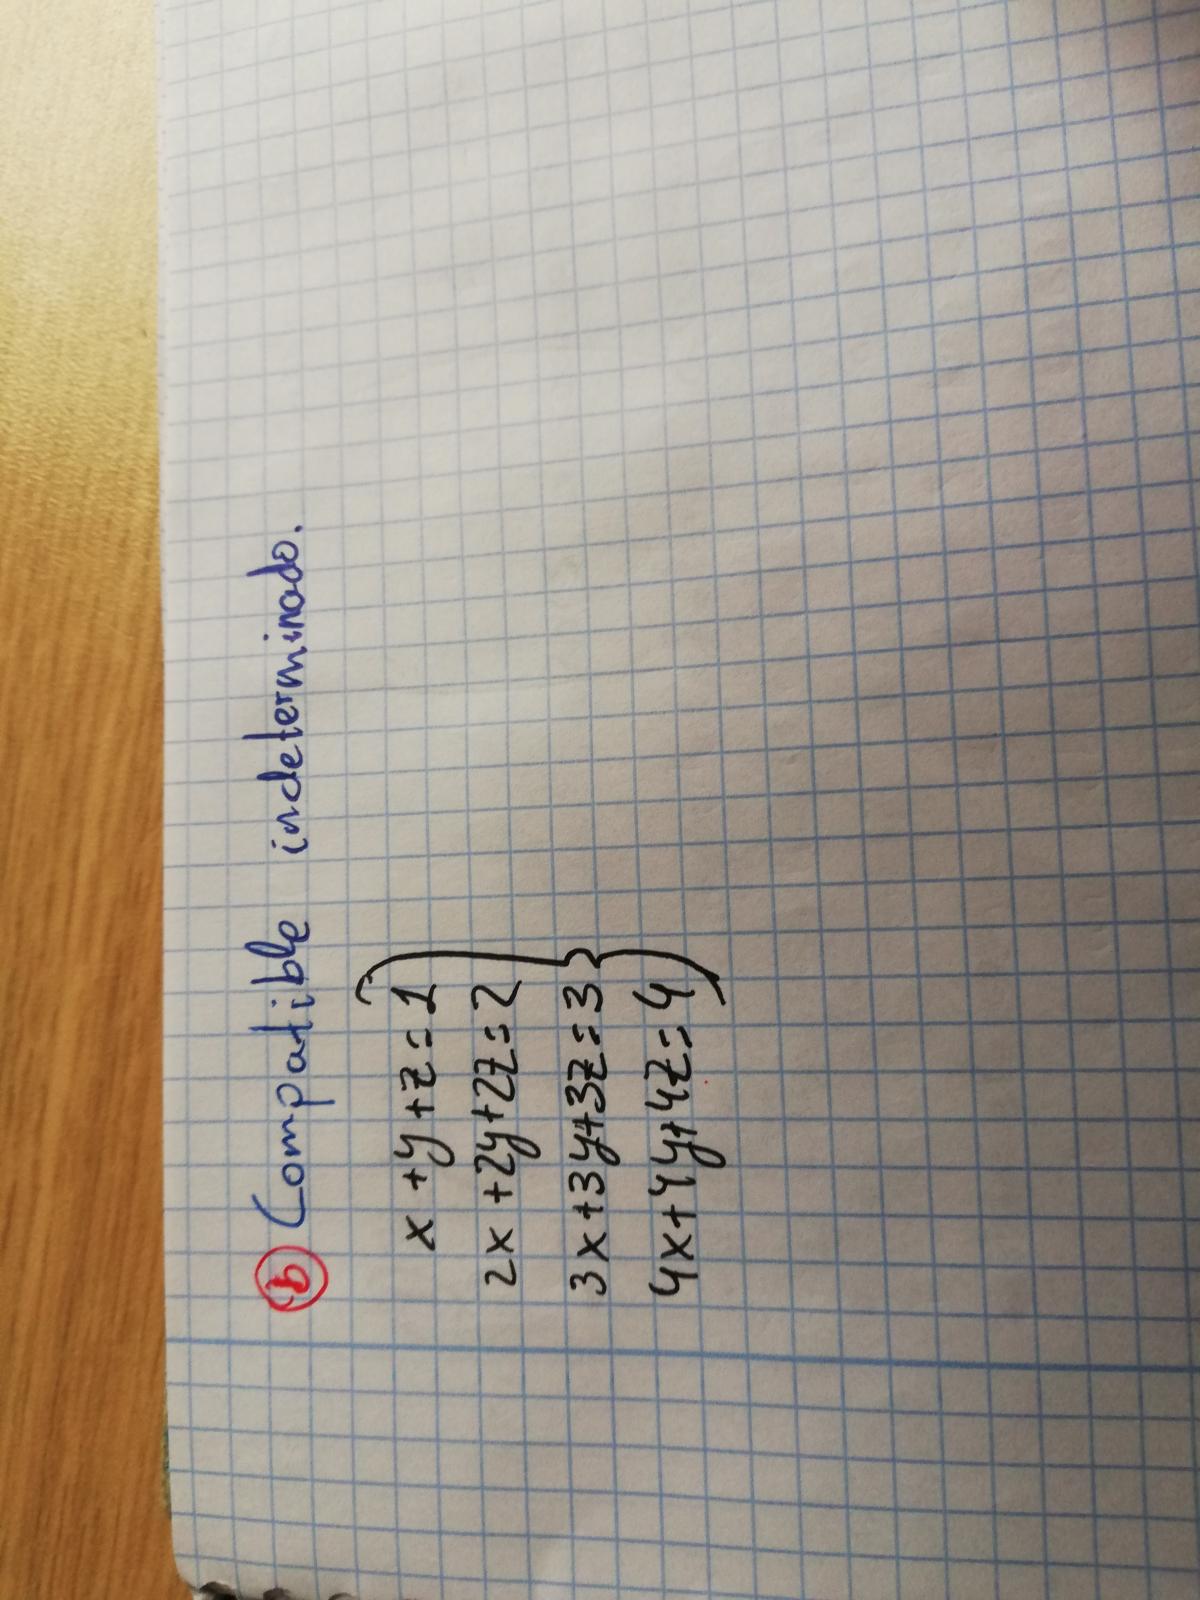 b) Compatible indeterminado.
x+y+z=1
2x+2y+2z=2
3x+3y+3z=3
4x+4y+4z=4